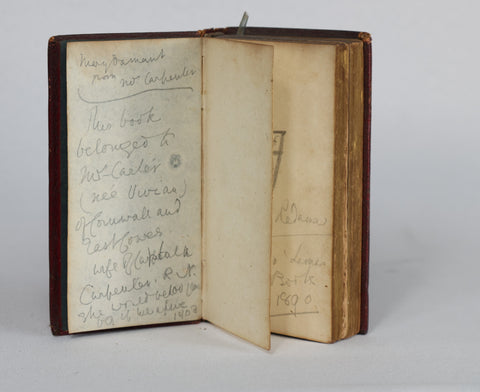 Mary Damant
from
Mrs Carpenter
This book
belonged to
Mrs Carter
(née Vivian)
of Cornwall and
East Cowes
wife of Captain
Carpenter, R.N.
She would be 100 years
if alive
1908
Book
1890.